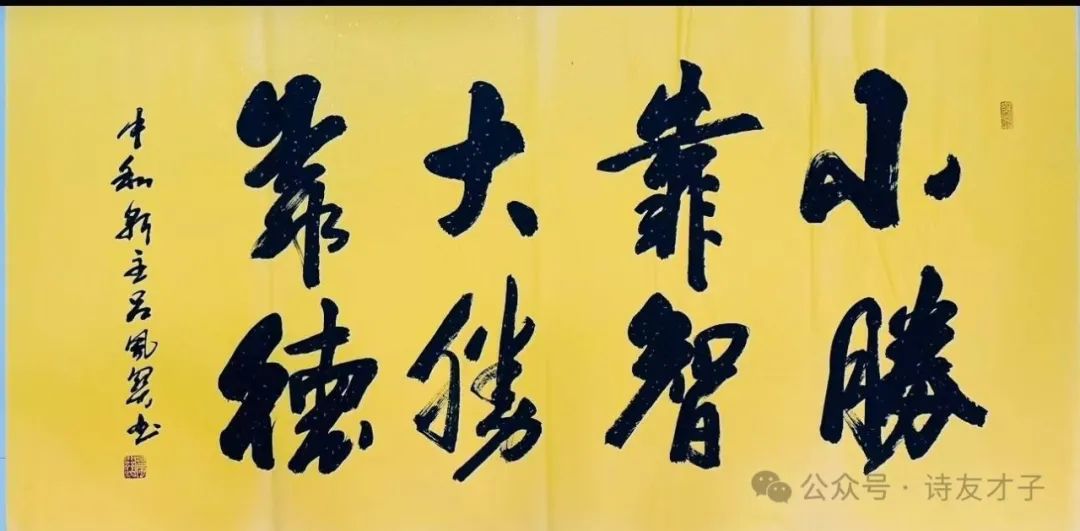 小勝
靠智
大勝
靠德
中和轩主吕凤巽书
公众号·诗友才子